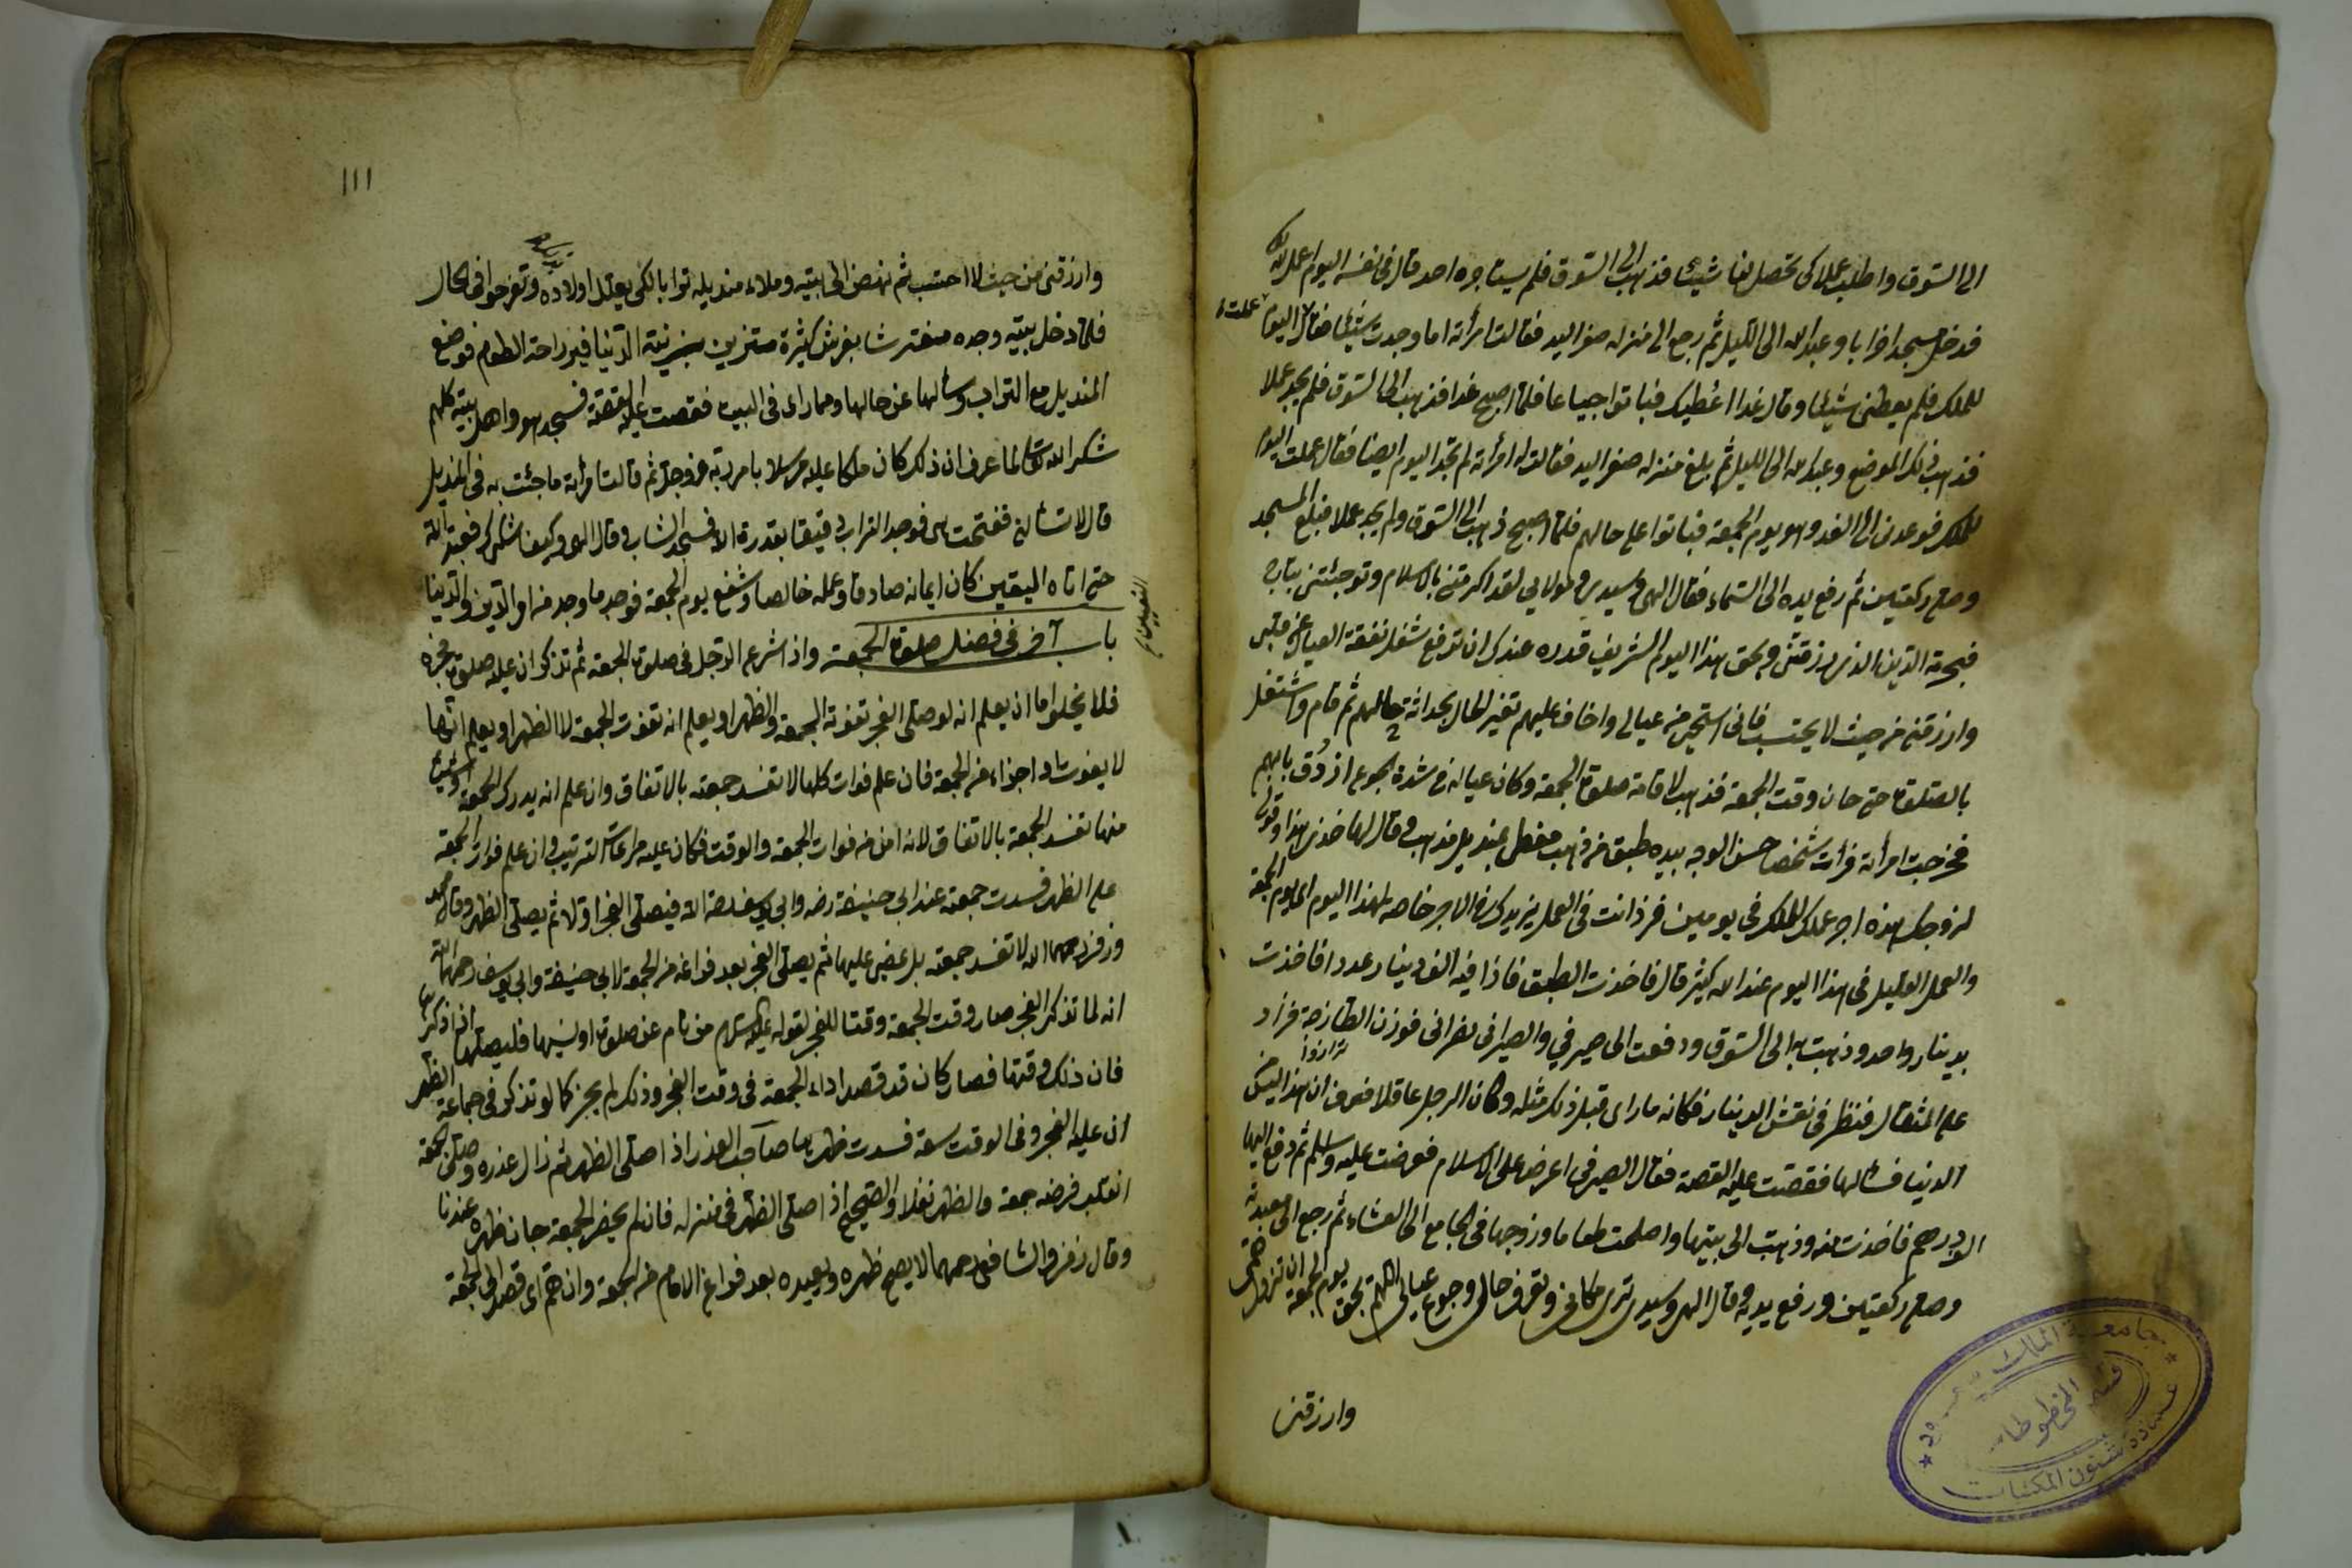 الى السوق واطلب عملا كى تحصل لنا شيئا فذهب الى السوق فلم يستاجره احد قال فى نفسه اليوم اعمل لله
فدخل مسجدا خرابا وعبد الله الى الليل ثم رجع الى منزله صفر اليد فقالت امرأته اما وجدت شيئا فقال اليوم عملت
للملك فلم يعطنى شيئا وقال غدا اعطيك فباتوا جياعا فلما اصبح غدا فذهب الى السوق فلم يجد عملا
فذهب ذلك الموضع وعبد الله الى الليل ثم بلغ منزله صفر اليد فقالت له امرأته لم تجد اليوم ايضا فقال عملت اليوم
للملك فوعدنى الى الغد وهو يوم الجمعة فباتوا على حالهم فلما اصبح ذهب الى السوق ولم يجد عملا فبلغ المسجد
وصلى ركعتين ثم رفع يده الى السماء فقال الهى وسيدى ومولاى لقد اكرمتنى بالاسلام وتوجتنى بتاج
فبحرمة الدين الذى رزقتنى وبحق هذا اليوم الشريف قدره عندك ان ترفع شغل نفقة العيال عن قلبى
وارزقنى من حيث لا يحتسب فانى استحيى من عيالى واخاف عليهم تغير الحال بحداثة حالهم ثم قام واشتغل
بالصلوة حتى حان وقت الجمعة فذهب لاقامة صلوة الجمعة وكان عياله فى شدة الجوع اذ دق بابهم
فخرجت امرأته فرأت شخصا حسن الوجه بيده طبق من ذهب مغطى بمنديل مذهب وقال لها خذى هذا وقولى
لزوجك هذه اجر عملك للملك فى يومين فزد انت فى العمل نزيدك فى الاجر خاصة لهذا اليوم اى يوم الجمعة
والعمل القليل فى هذا اليوم عند الله كثير قال فاخذت الطبق فاذا فيه الف دينار عددا فاخذت
بدينار واحد وذهبت به الى السوق ودفعت الى صيرفى والصيرفى نصرانى فوزن الطازجة فزاد
ترازوا
على المثقال فنظر فى نقش الدينار فكانه ما راى قبل ذلك مثله وكان الرجل عاقلا فعرف ان هذا ليس من
الدنيا فسألها فقصت عليه القصة فقال الصيرفى اعرض على الاسلام فعرضت عليه واسلم ثم دفع اليها
الدرهم فاخذت منه وذهبت الى بيتها واصلحت طعاما وزوجها فى الجامع الى العشاء ثم رجع الى معبده
وصلى ركعتين ورفع يديه وقال الهى وسيدى ترى مكانى وتعرف حالى وجوع عيالى اللهم بحق يوم الجمعة ان تزيل همى
وارزقنى
١١١
وارزقنى من حيث لا احتسب ثم نهض الى بيته وملاء منديله ترابا لكى يعلل اولاده وتفرحوا فى الحال
فلما دخل بيته وجده مفترشا بفرش كثيرة متزين بزينة الدنيا فيه راحة الطعوم فوضع
المنديل مع التراب وسألها عن حالها ومما راى فى البيت فقصت عليه القصة فسجد هو واهل بيته كلهم
شكر الله تعالى لما عرف ان ذلك كان ملكا عليه مرسلا بامر ربه عز وجل ثم قالت امرأته ما جئت به فى المنديل
قال لا تسألنى ففتحت هى فوجد التراب دقيقا بقدرة الله فسجد الشاب وقال الهى وكيف اشكرك فعبد الله
حتى اتاه اليقين كان ايمانه صادقا وعمله خالصا وشفع يوم الجمعة فوجد ما وجد من امر الدين والدنيا
باب آخر فى فضل صلوة الجمعة واذا شرع الرجل فى صلوة الجمعة ثم تذكر ان عليه صلوة فجره
فلا يخلوا اما ان يعلم انه لو صلى الفجر تفوته الجمعة والظهر او يعلم انه تفوت الجمعة لا الظهر او يعلم انها
لا يفوت او اجزاء من الجمعة فان علم فوات كلها لا تفسد جمعته بالاتفاق وان علم انه يدرك الجمعة او شيئا
منها تفسد الجمعة بالاتفاق لانه امن من فوات الجمعة والوقت فكان عليه مراعات الترتيب وان علم فوات الجمعة
على الظهر فسدت جمعته عند ابى حنيفة رضه وابى يوسف رحمة الله فيصلى الفجر اولا ثم يصلى الظهر وقال محمد
وزفر رحمهما الله لا تفسد جمعته بل يمضى عليها ثم يصلى الفجر بعد فراغه من الجمعة لابى حنيفة وابى يوسف رحمهما الله
انه لما تذكر الفجر صار وقت الجمعة وقتا للفجر لقوله عليه السلام من نام عن صلوة او نسيها فليصلها اذا ذكرها
فان ذلك وقتها فصار كان قد قصد اداء الجمعة فى وقت الفجر وذلك لم يجز كما لو تذكر فى جماعة الظهر
ان عليه الفجر وفى الوقت سعة فسدت ظهرها صاحب العذر اذا صلى الظهر ثم زال عذره وصلى الجمعة
انقلب فرضه جمعة والظهر نفلا والصحيح اذا صلى الظهر فى منزله فان لم يحضر الجمعة جاز ظهره عندنا
وقال زفر والشافعى رحمهما لا يصح ظهره ويعيده بعد فراغ الامام من الجمعة وان هم اى قصد الى الجمعة
جامعة الملك سعود
قسم المخطوطات
عمادة شئون المكتبات